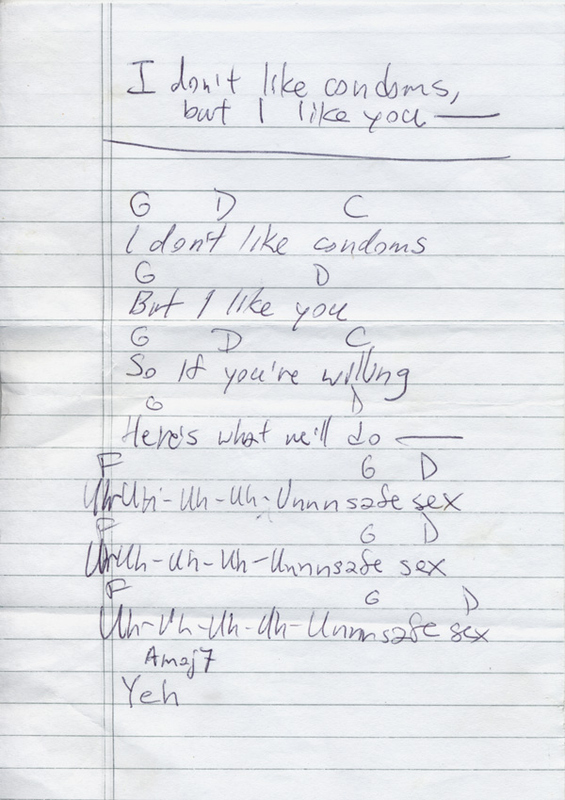 I don't like condoms,
but I like you —
G D C
I don't like condoms
G D
But I like you
G D C
So if you're willing
G D
Here's what we'll do —
F G D
Uh-Uh-Uh-Uh-Unnnsafe sex
F G D
Uh-Uh-Uh-Uh-Unnnnsafe sex
F G D
Uh-Uh-Uh-Uh-Unnnsafe sex
Amaj7
Yeh